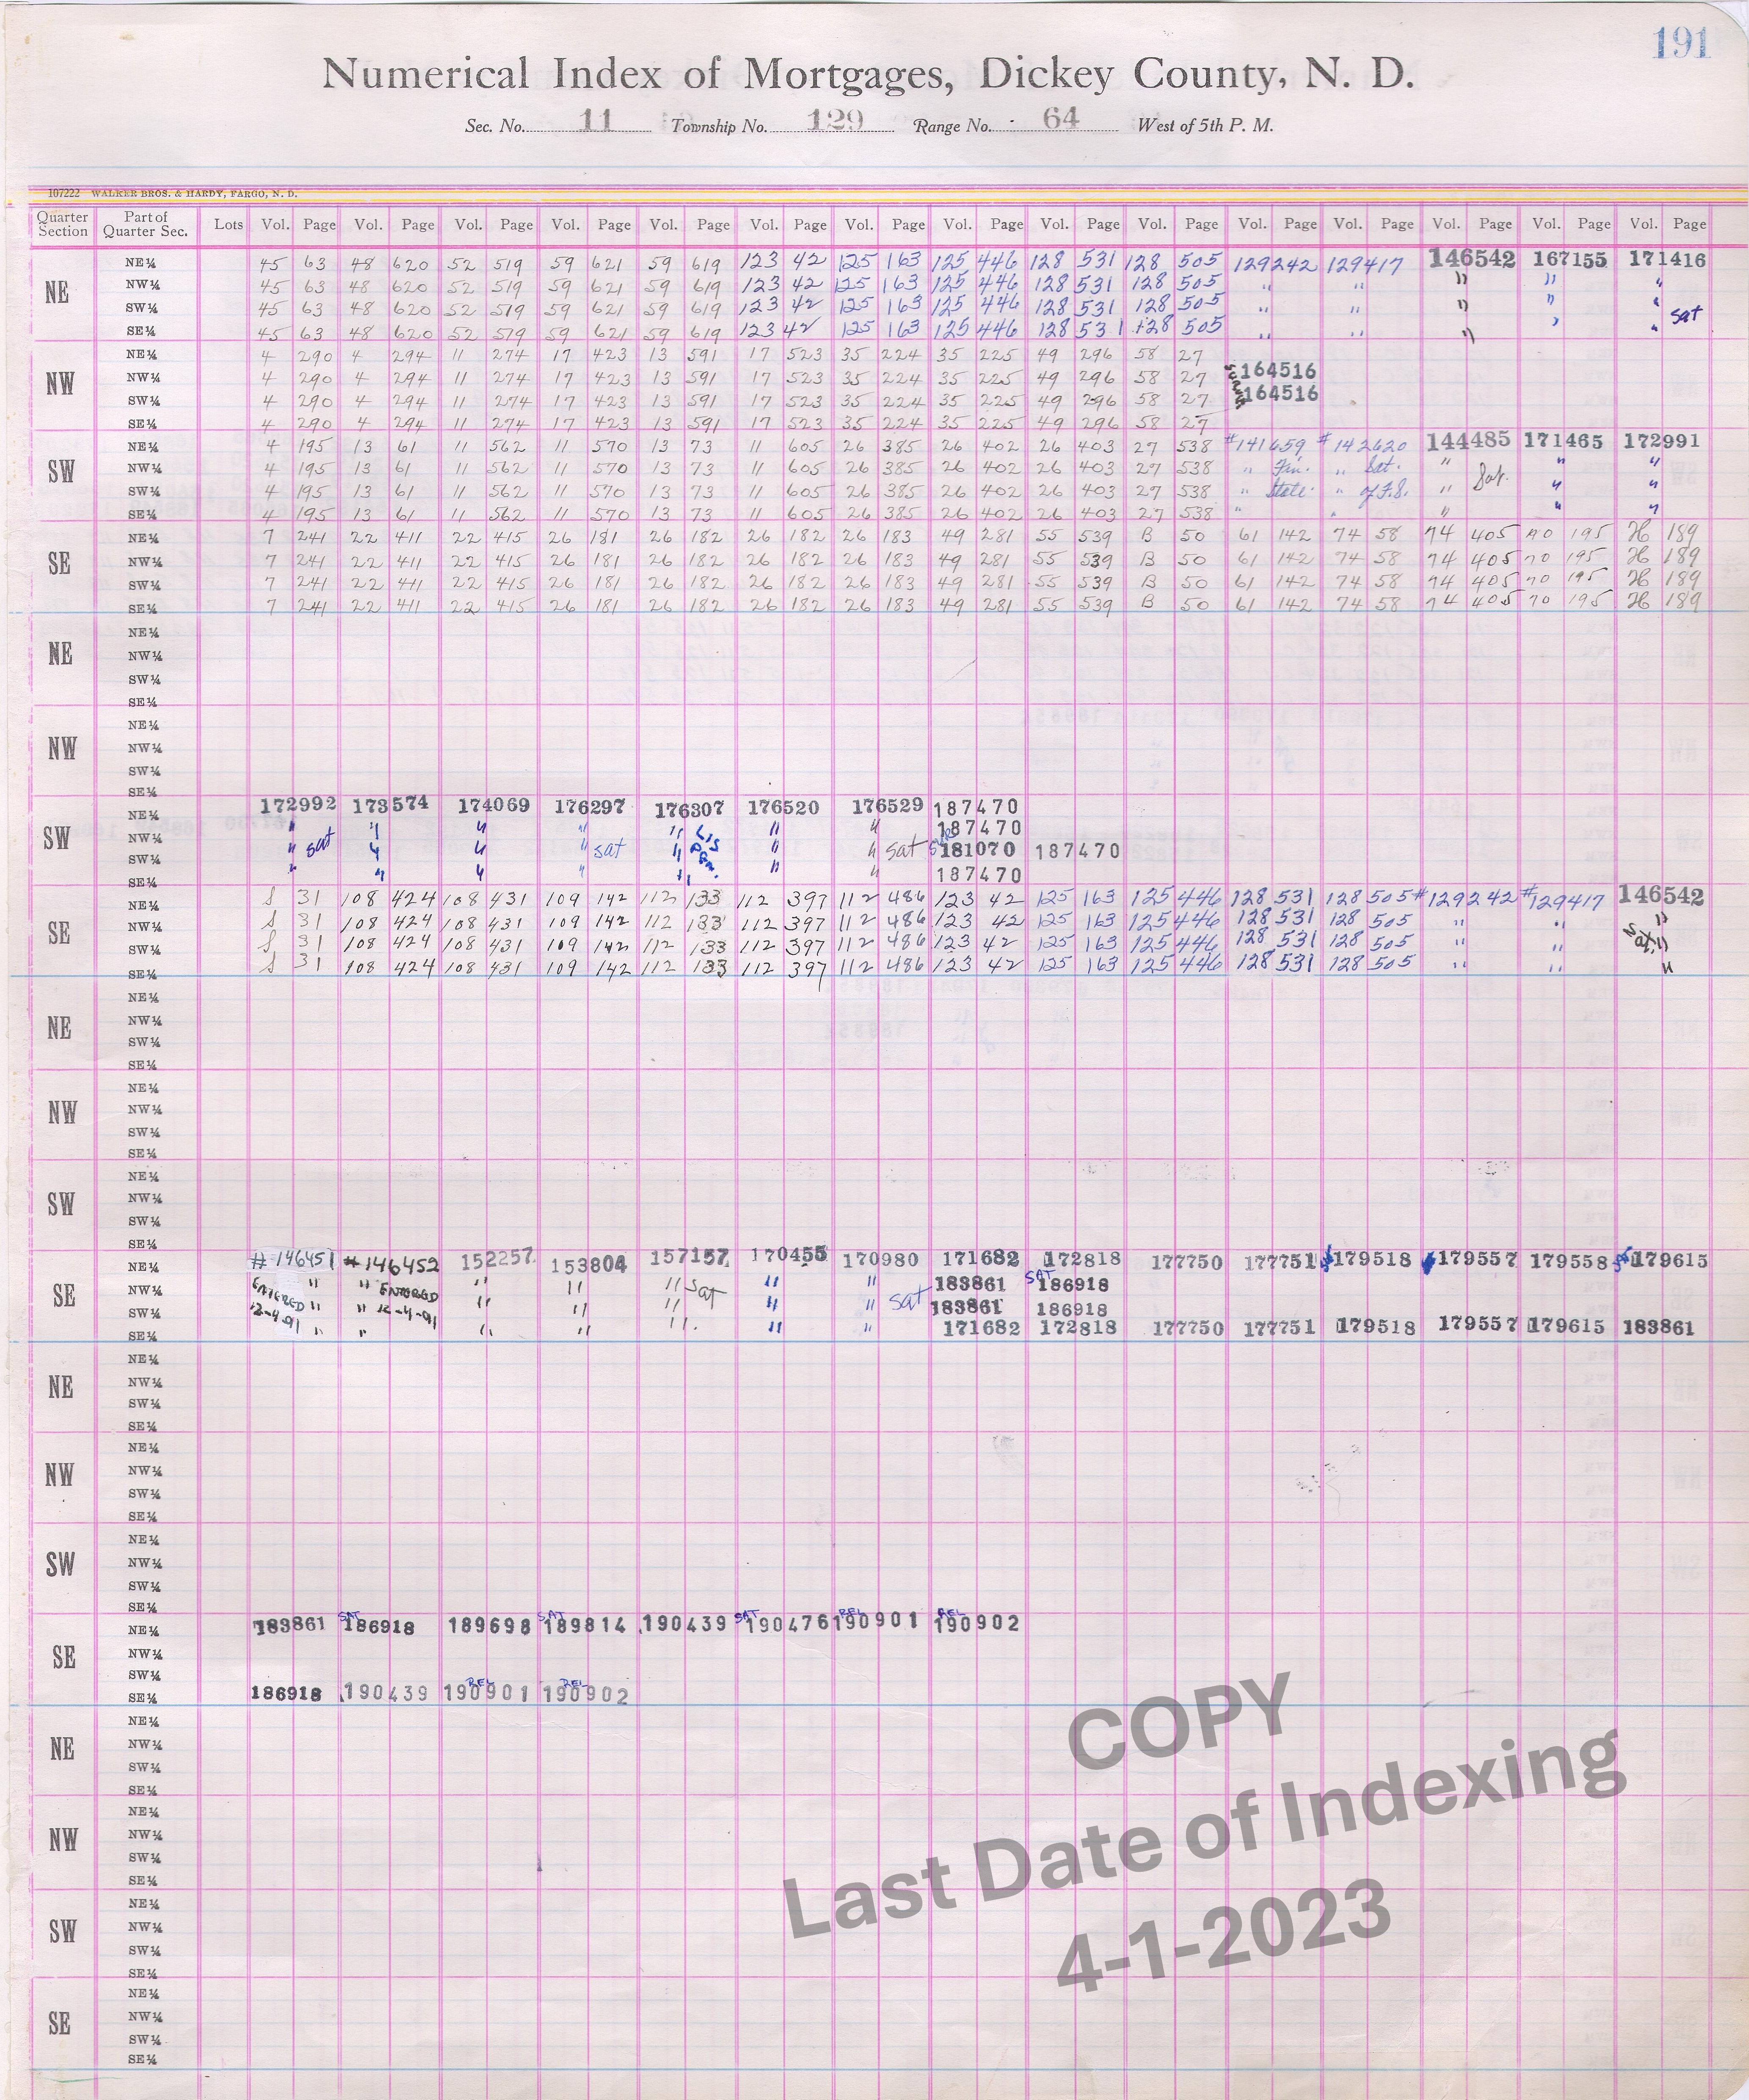 191
Numerical Index of Mortgages, Dickey County, N. D.
Sec. No. 11 Township No. 129 Range No. 64 West of 5th P. M.
107222 WALKER BROS. & HARDY, FARGO, N. D.
Quarter Section Part of Quarter Sec. Lots Vol. Page Vol. Page Vol. Page Vol. Page Vol. Page Vol. Page Vol. Page Vol. Page Vol. Page Vol. Page Vol. Page Vol. Page Vol. Page Vol. Page Vol. Page
NE NE¼ 45 63 48 620 52 519 59 621 59 619 123 42 125 163 125 446 128 531 128 505 129242 129417 146542 167155 171416
NW¼ 45 63 48 620 52 519 59 621 59 619 123 42 125 163 125 446 128 531 128 505 " " " " "
SW¼ 45 63 48 620 52 519 59 621 59 619 123 42 125 163 125 446 128 531 128 505 " " " " " sat
SE¼ 45 63 48 620 52 519 59 621 59 619 123 42 125 163 125 446 128 531 128 505 " " " " "
NW NE¼ 4 290 4 294 11 274 17 423 13 591 17 523 35 224 35 225 49 296 58 27
NW¼ 4 290 4 294 11 274 17 423 13 591 17 523 35 224 35 225 49 296 58 27 164516
SW¼ 4 290 4 294 11 274 17 423 13 591 17 523 35 224 35 225 49 296 58 27 164516
SE¼ 4 290 4 294 11 274 17 423 13 591 17 523 35 224 35 225 49 296 58 27
SW NE¼ 4 195 13 61 11 562 11 570 13 73 11 605 26 385 26 402 26 403 27 538 #141659 #142620 144485 171465 172991
NW¼ 4 195 13 61 11 562 11 570 13 73 11 605 26 385 26 402 26 403 27 538 " Fin. " Sat. " " "
SW¼ 4 195 13 61 11 562 11 570 13 73 11 605 26 385 26 402 26 403 27 538 " State. " of F.S. " Sat. " "
SE¼ 4 195 13 61 11 562 11 570 13 73 11 605 26 385 26 402 26 403 27 538 " " " " "
SE NE¼ 7 241 22 411 22 415 26 181 26 182 26 182 26 183 49 281 55 539 B 50 61 142 74 58 74 405 70 195 H 189
NW¼ 7 241 22 411 22 415 26 181 26 182 26 182 26 183 49 281 55 539 B 50 61 142 74 58 74 405 70 195 H 189
SW¼ 7 241 22 411 22 415 26 181 26 182 26 182 26 183 49 281 55 539 B 50 61 142 74 58 74 405 70 195 H 189
SE¼ 7 241 22 411 22 415 26 181 26 182 26 182 26 183 49 281 55 539 B 50 61 142 74 58 74 405 70 195 H 189
NE NE¼
NW¼
SW¼
SE¼
NW NE¼
NW¼
SW¼
SE¼
SW NE¼ 172992 173574 174069 176297 176307 176520 176529 187470
NW¼ " " " " " Lis " " 187470
SW¼ " sat " " " sat " Pen. " " sat 181070 187470
SE¼ " " " " " " " 187470
SE NE¼ S 31 108 424 108 431 109 142 112 133 112 397 112 486 123 42 125 163 125 446 128 531 128 505 #129242 #129417 146542
NW¼ S 31 108 424 108 431 109 142 112 133 112 397 112 486 123 42 125 163 125 446 128 531 128 505 " " "
SW¼ S 31 108 424 108 431 109 142 112 133 112 397 112 486 123 42 125 163 125 446 128 531 128 505 " " Sat "
SE¼ S 31 108 424 108 431 109 142 112 133 112 397 112 486 123 42 125 163 125 446 128 531 128 505 " " "
NE NE¼
NW¼
SW¼
SE¼
NW NE¼
NW¼
SW¼
SE¼
SW NE¼
NW¼
SW¼
SE¼
SE NE¼ #146451 #146452 152257 153804 157157 170455 170980 171682 172818 177750 177751 179518 179557 179558 179615
NW¼ ENTERED " " ENTERED " " " Sat " " 183861 SAT 186918
SW¼ 12-4-91 " " 12-4-91 " " " " " sat 183861 186918
SE¼ " " " " " " " 171682 172818 177750 177751 179518 179557 179615 183861
NE NE¼
NW¼
SW¼
SE¼
NW NE¼
NW¼
SW¼
SE¼
SW NE¼
NW¼
SW¼
SE¼
SE NE¼ 183861 SAT 186918 189698 SAT 189814 190439 SAT 190476 REL 190901 REL 190902
NW¼
SW¼
SE¼ 186918 190439 REL 190901 REL 190902
NE NE¼
NW¼
SW¼
SE¼
NW NE¼
NW¼
SW¼
SE¼
SW NE¼
NW¼
SW¼
SE¼
SE NE¼
NW¼
SW¼
SE¼
COPY
Last Date of Indexing
4-1-2023